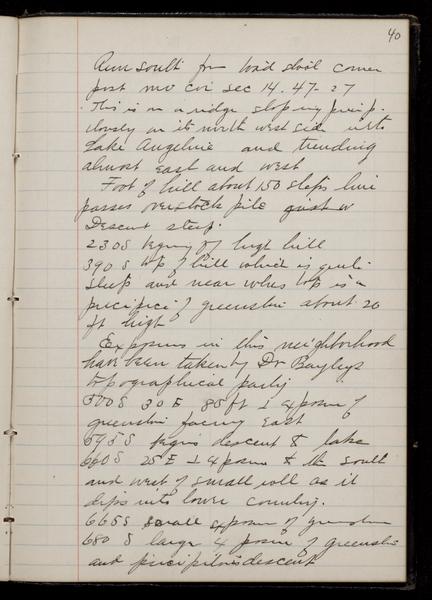 40
Run south from
post NW cor sec 14. 47-27
This is on a ridge sloping precip-
itously on its north west side into
Lake Angeline and trending
almost east and west
Foot of hill about 150 steps line
passes over stock pile
Descent steep.
230 S begin of high hill
390 S top of hill which is quite
steep and near whose top is a
precipice of greenstone about 20
ft high
Exposures in this neighborhood
have been taken by Dr Bayleys
topographical party
500 S 30 E 85 ft ⊥ exposure of
greenstone facing East
595 S begin descent to lake
660 S 25 E ⊥ exposure to the south
and west of small roll as it
dips into lower country.
665 S small exposure of greenstone
680 S large exposure of greenstone
and precipitous descent